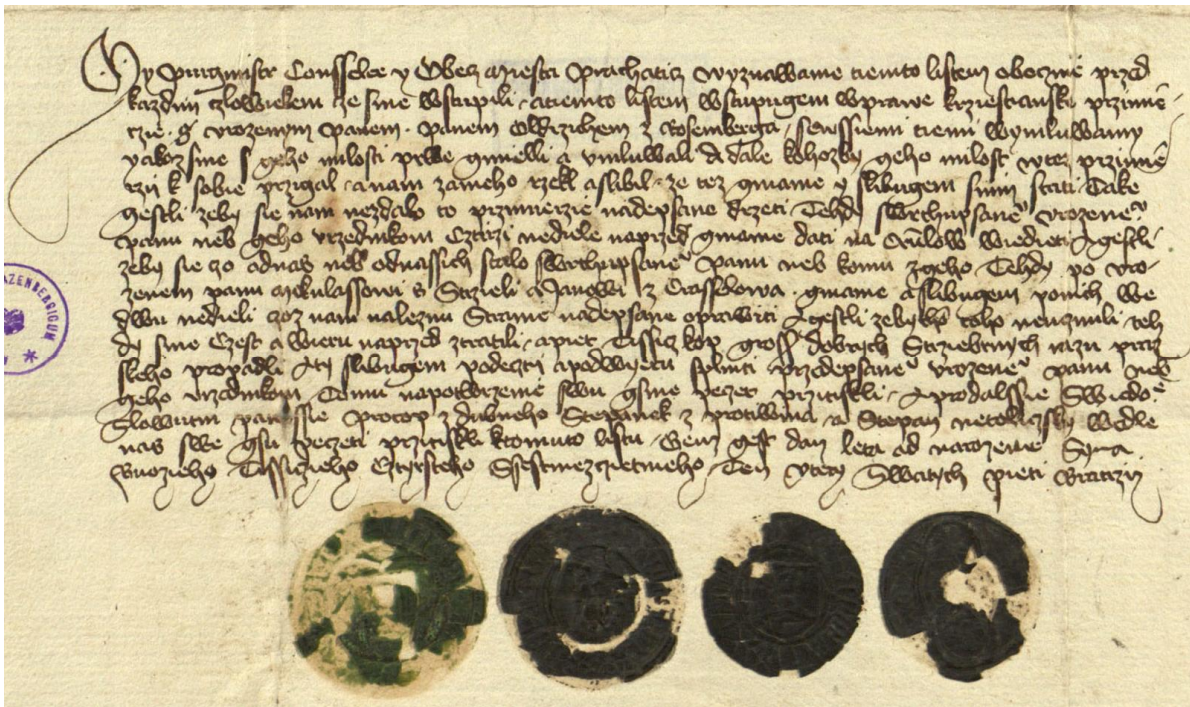 My Purgmistr Consselee y Obecz miesta Prachaticz wyznawame tiemto listem obecznie przed
kazdym czlowiekem ze sme wstupili a tiemto listem wstupugem wprawe krziestianske przimie-
rzie s urozenym panem panem Oldrzichem z Rosemberga se wssiemi tiemi wymluwamy
yakoz sme s geho milosti prwe gmielli a umluwali A dale kohozby geho milost w tez przimie
rzii k sobie przigal a nam zaneho rzekl a slibil ze tez gmame y slibugem snim stati Take
gestli zeby sie nam nezdalo to przimierzie nadepsane drzeti Tehdy swrchupsane urozene
panu neb geho urzednikom Cztirzi nediele naprzed gmame dati na wiedieti Agestli
zeby sie czo odnas neb odnassich stalo swrchupsane panu neb komu zgeho Tehdy po uro-
zenem panu Mikulassowi Janowi z gmame a slibugem ponich we
dwu nedieli czoz nam naleznu Strane nadepsane oprawiti Agestli zebychom toho neuczinili teh
dy sme Czest a wieru naprzed ztratili a piet Tissicz kop gross dobrych Strziebrnych razu praz
skeho propadli Aty slibugem podezcti a podwieru splniti przedepsane urozene panu neb
geho urzednikom Tomu napotwrzenie swu gsme peczet przitiskli Aprodalssie Swiedo
panossie Procop z dubneho Stepanek z protiwina a Stepan netoliczsky wedle
nas swe gsu peczeti przitiskli ktomuto listu Genz gest dan leta od narozenie Syna
buozieho Tissiczieho Cztyrsteho Ten utery Swatych pieti bratrzij